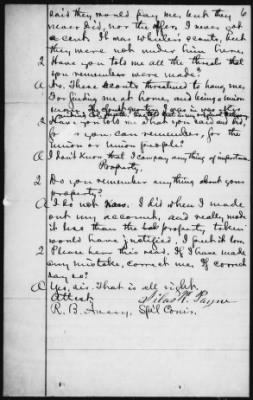 6
said they would pay me, but they
never did, nor the officers. I never got
a cent. It was Wheeler's scouts, but
they were not under him here.
Q Have you told me all the threats that
you remember were made?
A No. These scouts threatened to hang me,
for finding me at home, and being a union
Q Have you told me all you said and did,
so far as you can remember, for the
union or Union people?
A I don't know that I can say anything of importance.
Property.
Q Do you remember anything about your
property?
A I do not now. I did when I made
out my account, and really made
it less than the property, taken
would have justified. I put it low.
Q Please hear this read. If I have made
any mistake, correct me. If correct
say so?
A Yes, sir. That is all right.
Attest: Silas R. Payne
R. B. Avery, Spcl Comr.